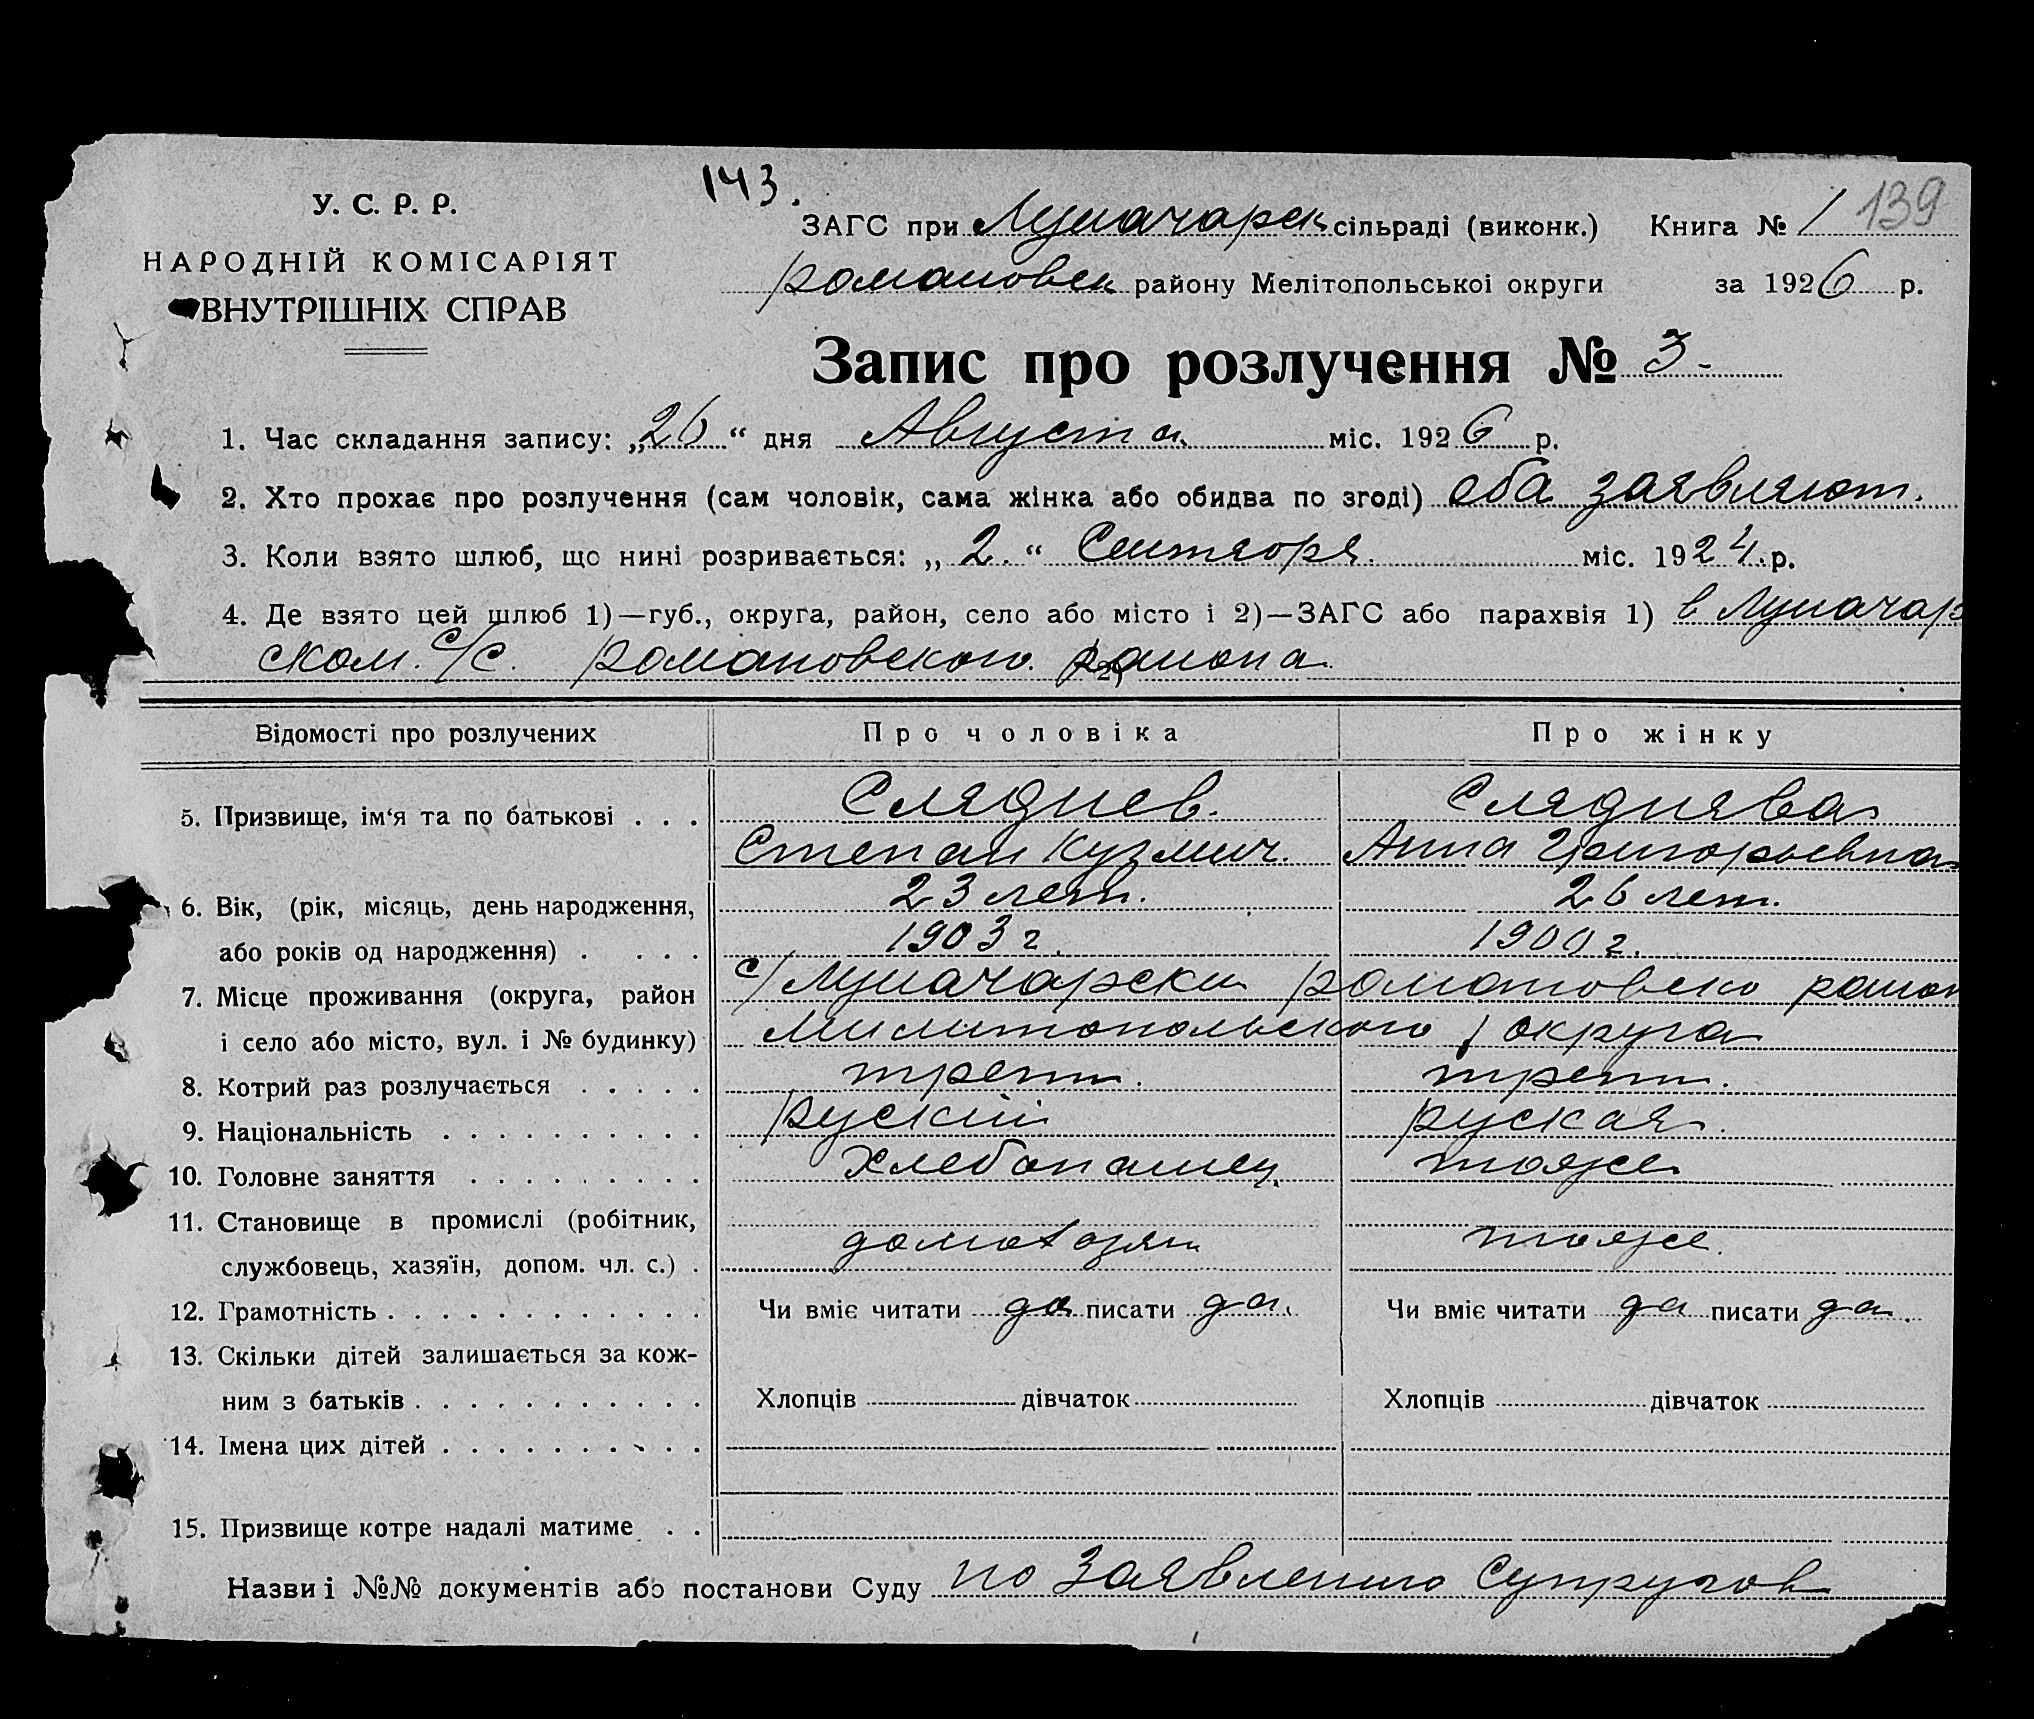 143.
139
У. С. Р. Р.
НАРОДНІЙ КОМІСАРІЯТ
ВНУТРІШНІХ СПРАВ
ЗАГС при Луначарск сільраді (виконк.) Книга № 1
романовск району Мелітопольської округи за 1926 р.
Запис про розлучення № 3-
1. Час складання запису: „26" дня Августа міс. 1926 р.
2. Хто прохає про розлучення (сам чоловік, сама жінка або обидва по згоді) оба заявляют.
3. Коли взято шлюб, що нині розривається: „2." Сентября. міс. 1924. р.
4. Де взято цей шлюб 1)—губ., округа, район, село або місто і 2)—ЗАГС або парахвія 1) в Луначар
ском. с/с. романовского. района.
2)
Відомості про розлучених Про чоловіка Про жінку
5. Призвище, ім'я та по батькові . . . Сляднев. Сляднява
Степан Кузмич. Анна Григорьевна
6. Вік, (рік, місяць, день народження, 23 лет. 26 лет.
або років од народження) . . . . 1903 г. 1900 г.
7. Місце проживання (округа, район с/Луначарски романовско район
і село або місто, вул. і № будинку) Милитопольского округа
8. Котрий раз розлучається . . . . . трет. трет.
9. Національність . . . . . . . . . . руский руская.
10. Головне заняття . . . . . . . . . Хлебопашец тоже
11. Становище в промислі (робітник,
службовець, хазяїн, допом. чл. с.) . домохозяин тоже.
12. Грамотність . . . . . . . . . . . . Чи вміє читати да писати да. Чи вміє читати да писати да.
13. Скільки дітей залишається за кож-
ним з батьків . . . . . . . . . . . Хлопців дівчаток Хлопців дівчаток
14. Імена цих дітей . . . . . . . . . .
15. Призвище котре надалі матиме . .
Назви і №№ документів або постанови Суду по Заявлению Супругов